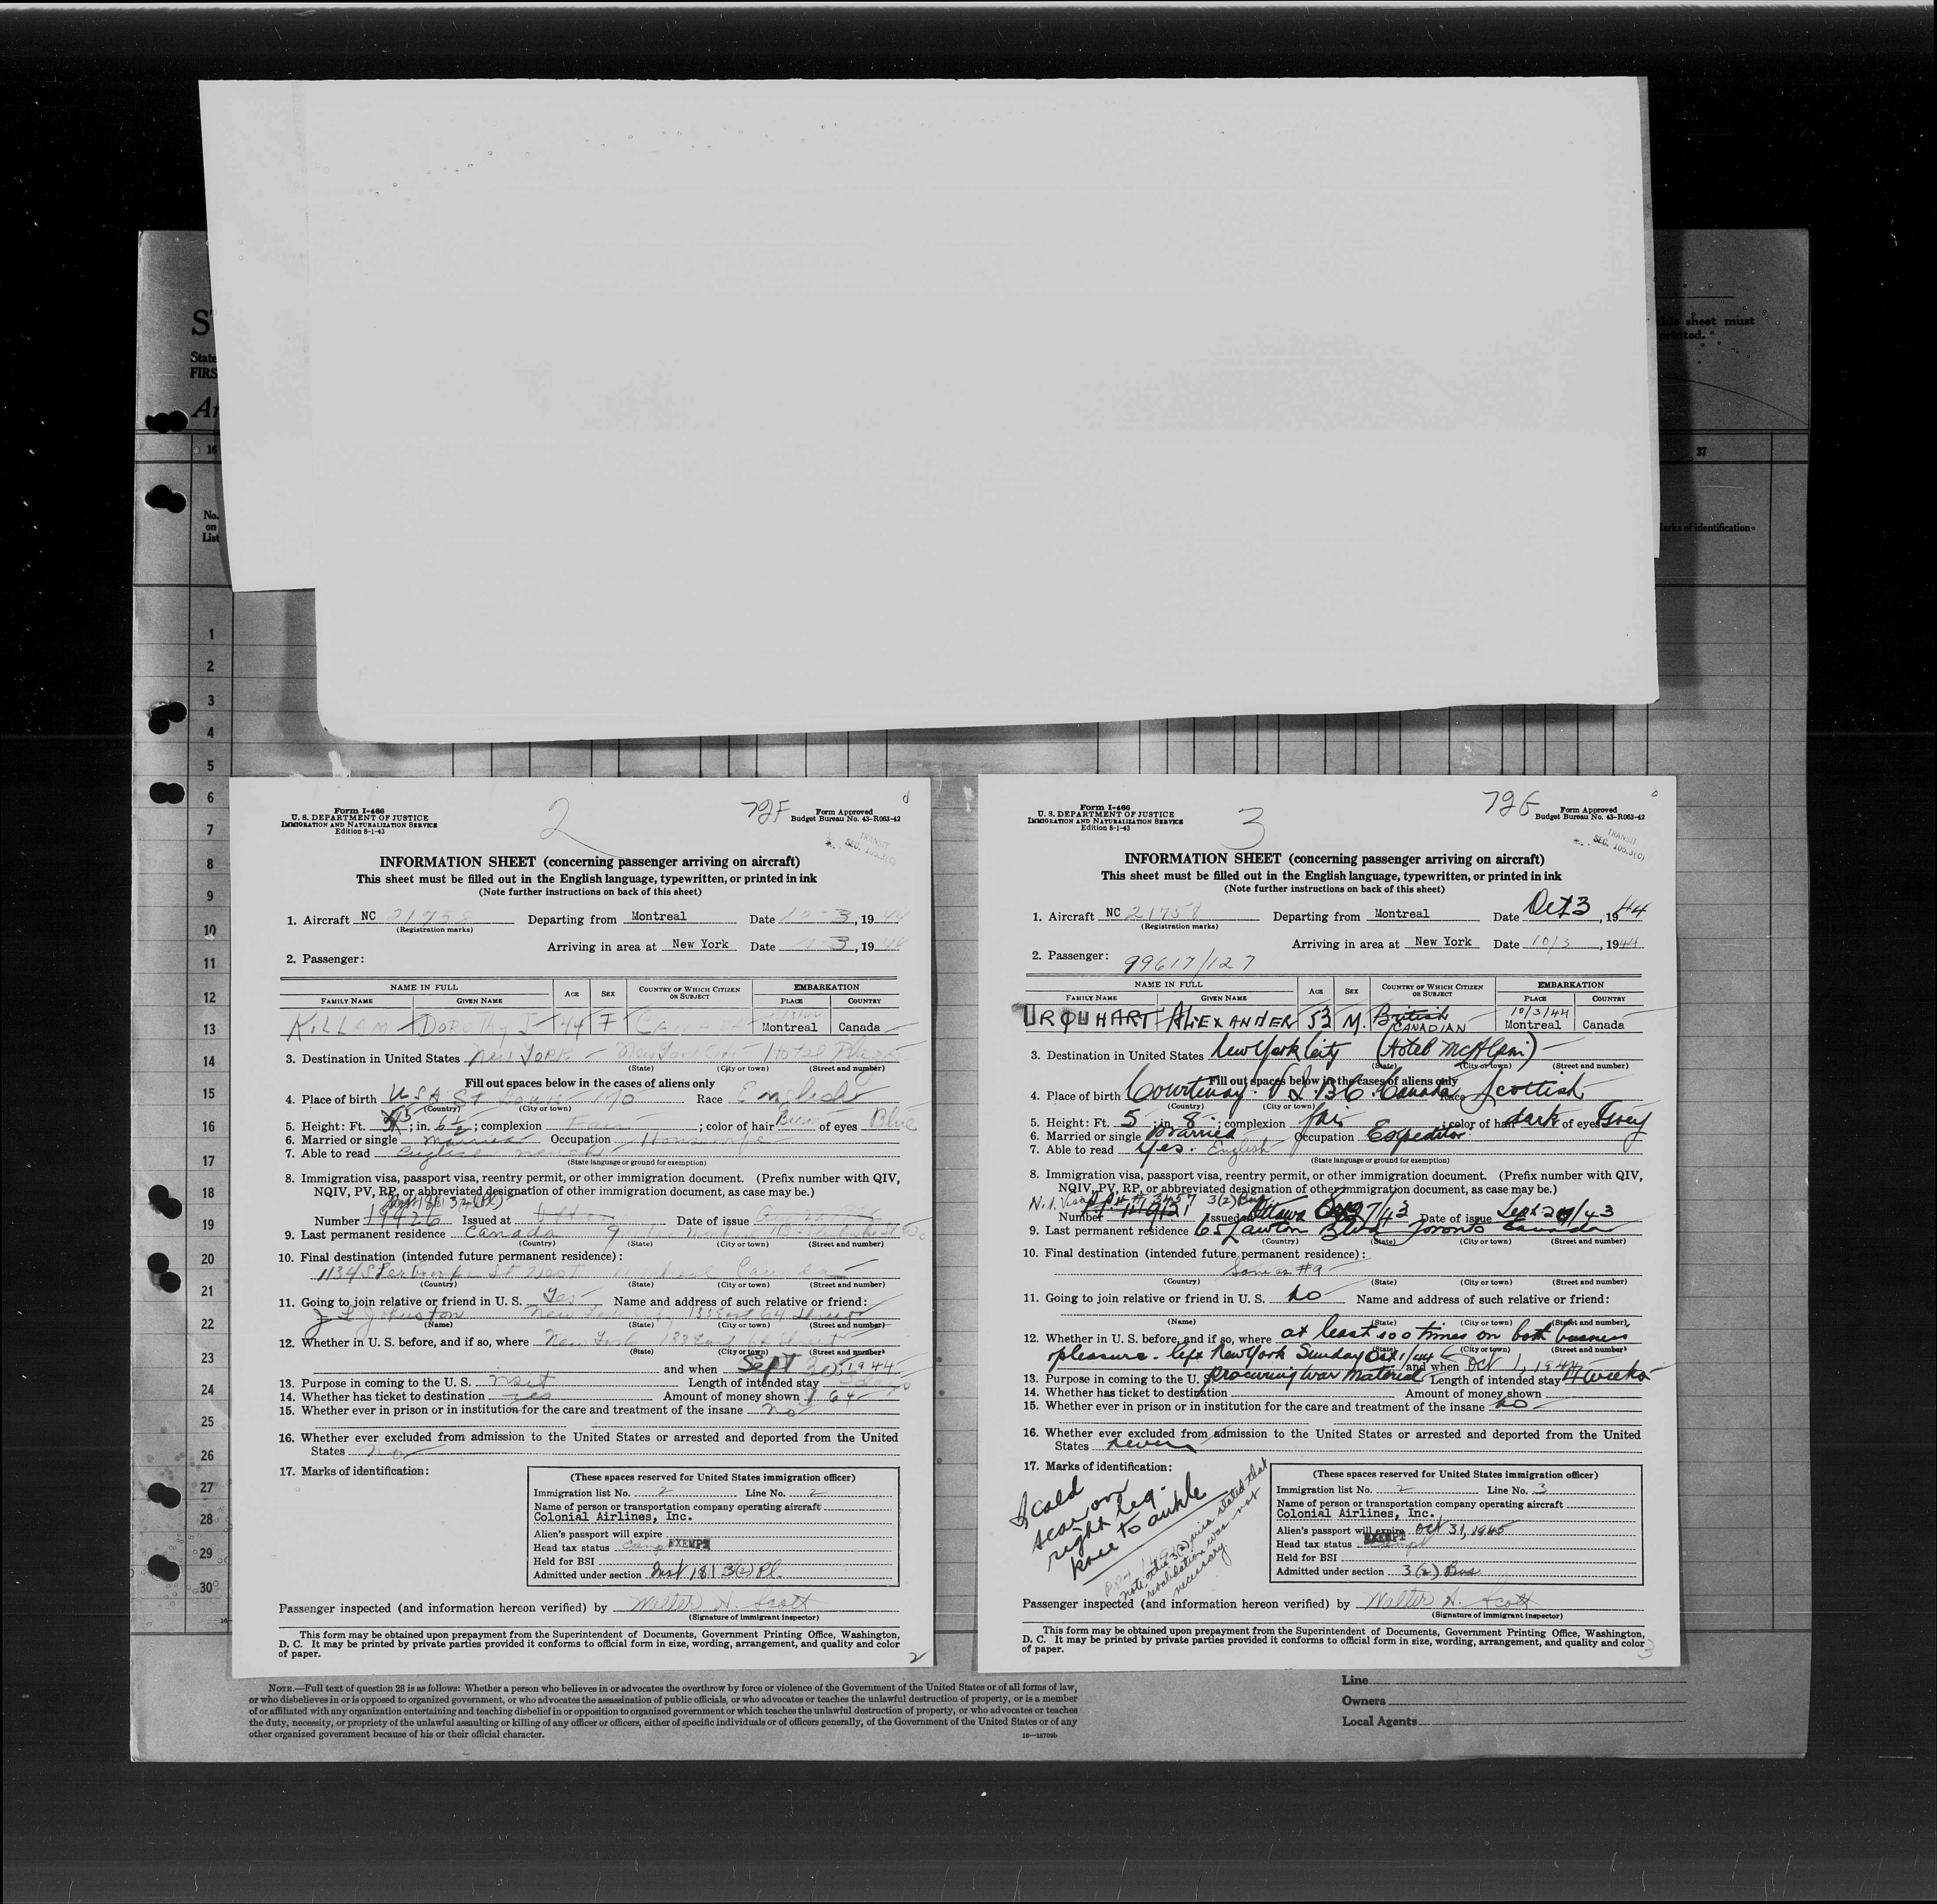 ST
State
FIRS
Ar
this sheet must
printed.
16
37
No.
on
List
Marks of identification
1
2
3
4
5
6
7
8
9
10
11
12
13
14
15
16
17
18
19
20
21
22
23
24
25
26
27
28
29
30
Form I-466
U. S. DEPARTMENT OF JUSTICE
IMMIGRATION AND NATURALIZATION SERVICE
Edition 8-1-43
2
72F
Form Approved
Budget Bureau No. 43-R063-42
TRANSIT
SEC. 105.3(C)
INFORMATION SHEET (concerning passenger arriving on aircraft)
This sheet must be filled out in the English language, typewritten, or printed in ink
(Note further instructions on back of this sheet)
1. Aircraft NC 21758 Departing from Montreal Date 10-3, 1944
(Registration marks)
Arriving in area at New York Date 10-3, 1944
2. Passenger:
NAME IN FULL AGE SEX COUNTRY OF WHICH CITIZEN OR SUBJECT EMBARKATION
FAMILY NAME GIVEN NAME PLACE COUNTRY
KILLAM DOROTHY J 44 F CANADA 10/3/44 Montreal Canada
3. Destination in United States New York - New York City - Hotel Plaza
(State) (City or town) (Street and number)
Fill out spaces below in the cases of aliens only
4. Place of birth U S A St Louis Mo Race English
(Country) (City or town)
5. Height: Ft. 5; in. 6 1/2; complexion Fair; color of hair of eyes Blue
6. Married or single Married Occupation Housewife
7. Able to read English French
(State language or ground for exemption)
8. Immigration visa, passport visa, reentry permit, or other immigration document. (Prefix number with QIV,
NQIV, PV, RP, or abbreviated designation of other immigration document, as case may be.)
181 3(2)(Pl)
Number 19926 Issued at Ottawa Date of issue
9. Last permanent residence Canada
(Country) (State) (City or town) (Street and number)
10. Final destination (intended future permanent residence):
1134 Sherbrooke St West Montreal Canada
(Country) (State) (City or town) (Street and number)
11. Going to join relative or friend in U. S. Yes Name and address of such relative or friend:
J L Johnston New York City 133 East 64 Street
(Name) (State) (City or town) (Street and number)
12. Whether in U. S. before, and if so, where New York 133 East 64 Street
(State) (City or town) (Street and number)
and when Sept 30 1944
13. Purpose in coming to the U. S. Visit Length of intended stay days
14. Whether has ticket to destination yes Amount of money shown $ 64
15. Whether ever in prison or in institution for the care and treatment of the insane no
16. Whether ever excluded from admission to the United States or arrested and deported from the United
States no
17. Marks of identification:
(These spaces reserved for United States immigration officer)
Immigration list No. 2 Line No. 2
Name of person or transportation company operating aircraft
Colonial Airlines, Inc.
Alien's passport will expire
Head tax status EXEMPT
Held for BSI
Admitted under section Inst 181 3(2) Pl.
Passenger inspected (and information hereon verified) by Walter H. Scott
(Signature of immigrant inspector)
This form may be obtained upon prepayment from the Superintendent of Documents, Government Printing Office, Washington,
D. C. It may be printed by private parties provided it conforms to official form in size, wording, arrangement, and quality and color
of paper.
2
Form I-466
U. S. DEPARTMENT OF JUSTICE
IMMIGRATION AND NATURALIZATION SERVICE
Edition 8-1-43
3
72G
Form Approved
Budget Bureau No. 43-R063-42
TRANSIT
SEC. 105.3(C)
INFORMATION SHEET (concerning passenger arriving on aircraft)
This sheet must be filled out in the English language, typewritten, or printed in ink
(Note further instructions on back of this sheet)
1. Aircraft NC 21758 Departing from Montreal Date Oct 3, 1944
(Registration marks)
Arriving in area at New York Date 10/3, 1944
2. Passenger: 99617/127
NAME IN FULL AGE SEX COUNTRY OF WHICH CITIZEN OR SUBJECT EMBARKATION
FAMILY NAME GIVEN NAME PLACE COUNTRY
URQUHART ALEXANDER 53 M. British CANADIAN 10/3/44 Montreal Canada
3. Destination in United States New York City (Hotel McAlpin)
(State) (City or town) (Street and number)
Fill out spaces below in the cases of aliens only
4. Place of birth Courtenay. V I. B C. Canada Race Scottish
(Country) (City or town)
5. Height: Ft. 5; in. 8; complexion fair; color of hair dark of eyes Grey
6. Married or single Married Occupation Expeditor
7. Able to read Yes. English
(State language or ground for exemption)
8. Immigration visa, passport visa, reentry permit, or other immigration document. (Prefix number with QIV,
NQIV, PV, RP, or abbreviated designation of other immigration document, as case may be.)
N.I. Visa # 3457 3(2) Bus
Number Issued at Ottawa 7/43 Date of issue Sept 29/43
9. Last permanent residence 65 Lawton Blvd Toronto Canada
(Country) (State) (City or town) (Street and number)
10. Final destination (intended future permanent residence):
Same as #9
(Country) (State) (City or town) (Street and number)
11. Going to join relative or friend in U. S. No Name and address of such relative or friend:
(Name) (State) (City or town) (Street and number)
12. Whether in U. S. before, and if so, where at least 100 times on both business
(State) (City or town) (Street and number)
pleasure - left New York Sunday Oct 1/44 and when Oct 1, 1944
13. Purpose in coming to the U. S. procuring War Material Length of intended stay weeks
14. Whether has ticket to destination Amount of money shown
15. Whether ever in prison or in institution for the care and treatment of the insane No
16. Whether ever excluded from admission to the United States or arrested and deported from the United
States never
17. Marks of identification:
Scald
scar on
right leg.
knee to ankle
note this 3(2) visa stated that
revalidation was not
necessary.
(These spaces reserved for United States immigration officer)
Immigration list No. 2 Line No. 3
Name of person or transportation company operating aircraft
Colonial Airlines, Inc.
Alien's passport will expire Oct 31, 1945
Head tax status EXEMPT
Held for BSI
Admitted under section 3(2) Bus
Passenger inspected (and information hereon verified) by Walter H. Scott
(Signature of immigrant inspector)
This form may be obtained upon prepayment from the Superintendent of Documents, Government Printing Office, Washington,
D. C. It may be printed by private parties provided it conforms to official form in size, wording, arrangement, and quality and color
of paper.
3
NOTE.—Full text of question 28 is as follows: Whether a person who believes in or advocates the overthrow by force or violence of the Government of the United States or of all forms of law,
or who disbelieves in or is opposed to organized government, or who advocates the assassination of public officials, or who advocates or teaches the unlawful destruction of property, or is a member
of or affiliated with any organization entertaining and teaching disbelief in or opposition to organized government or which teaches the unlawful destruction of property, or who advocates or teaches
the duty, necessity, or propriety of the unlawful assaulting or killing of any officer or officers, either of specific individuals or of officers generally, of the Government of the United States or of any
other organized government because of his or their official character.
16—18709b
Line
Owners
Local Agents